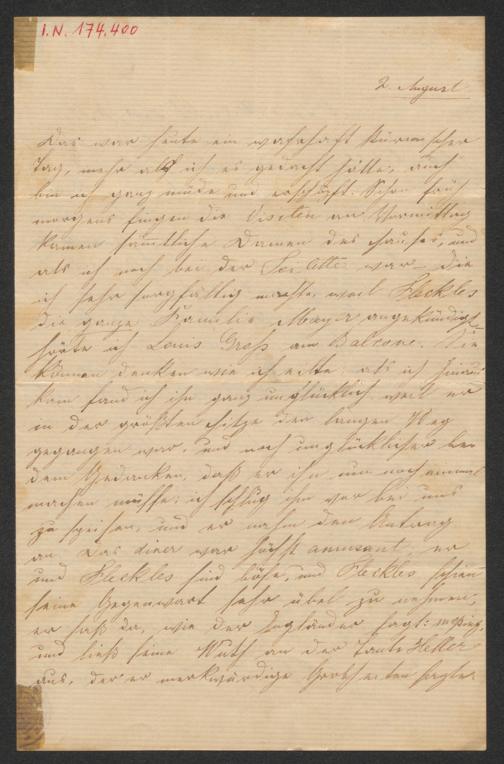 I.N. 174.400
2. August
Das war heute ein wahrhaft stürmischer
Tag, mehr als ich es gedacht hätte, auch
bin ich ganz müde und erschöpft. Schon früh
morgens fingen die Visiten an Vormittag
kamen sämtliche Damen des Hauses, und
als ich noch bei der Toilette war – die
ich sehr sorgfältig machte, weil Fleckles
die ganze Familie Mayer angekündigt
hörte ich Louis Groß am Balcone. Sie
können denken wie ich eilte: als ich hinaus
kam fand ich ihn ganz unglücklich weil er
in der größten Hitze den langen Weg
gegangen war, und noch unglücklicher bei
dem Gedanken, daß er ihn nun noch einmal
machen müsse; ich schlug ihm vor bei uns
zu speisen, und er nahm den Antrag
an. Das diner war höchst amusant, er
und Fleckles sind böse, und Fleckles schien
seine Gegenwart sehr übel zu nehmen;
er saß da, wie der Engländer sagt:
und ließ seine Wuth an der Tante Heller
aus, der er merkwürdige Grobheiten sagte.